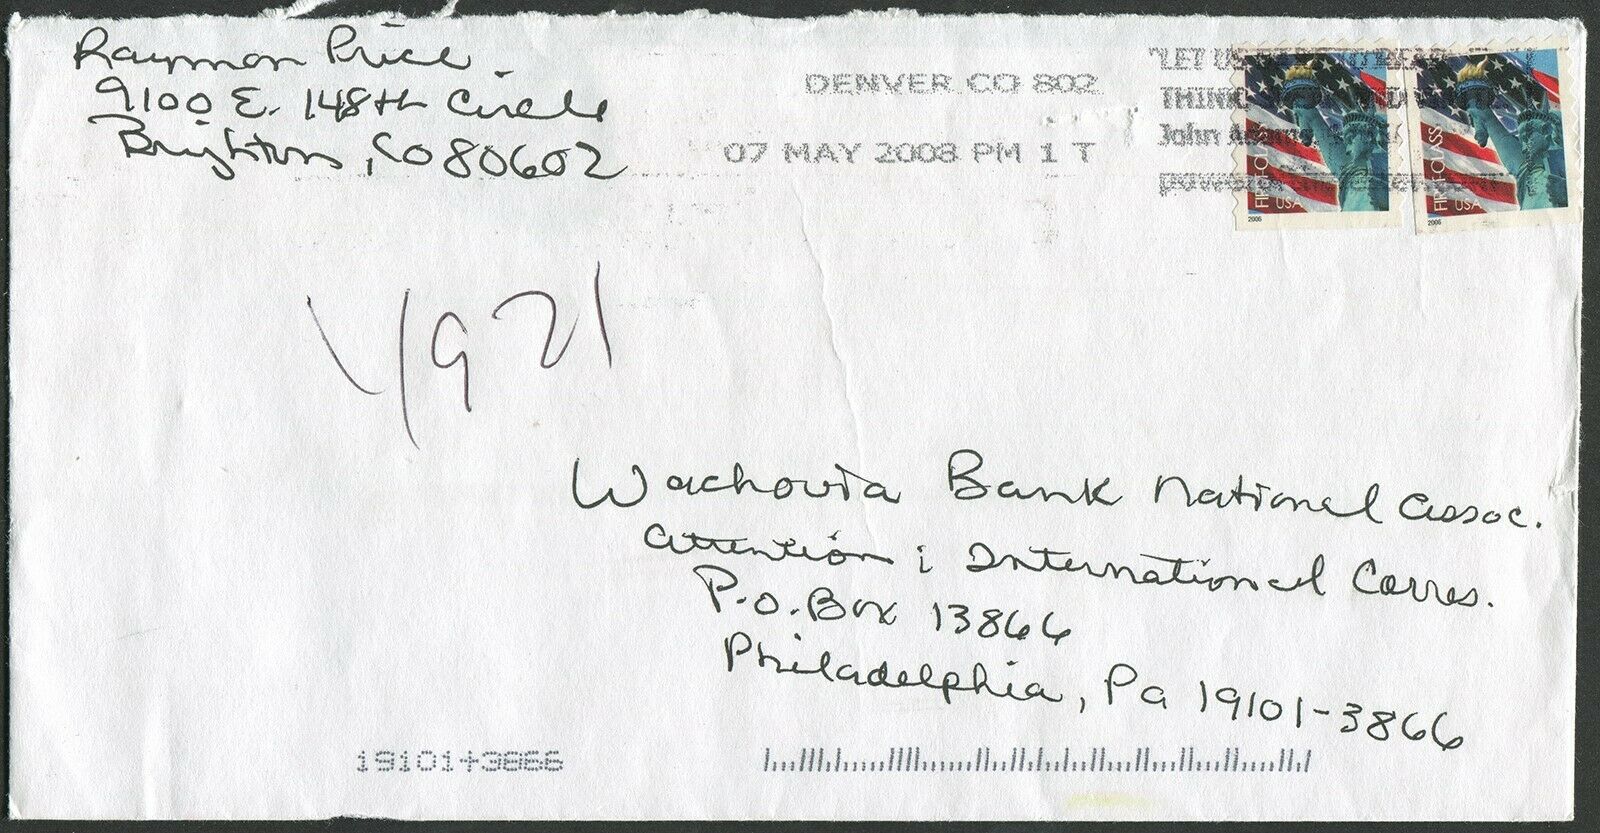 Raymon Price.
9100 E. 148th Circle
Brighton, CO 80602
DENVER CO 802
07 MAY 2008 PM 1 T
"LET US
THINK
John Adams
FIRST-CLASS
USA
2006
FIRST-CLASS
USA
2006
Wachovia Bank National Assoc.
Attention: International Corres.
P.O. Box 13866
Philadelphia, Pa 19101-3866
19101+3866